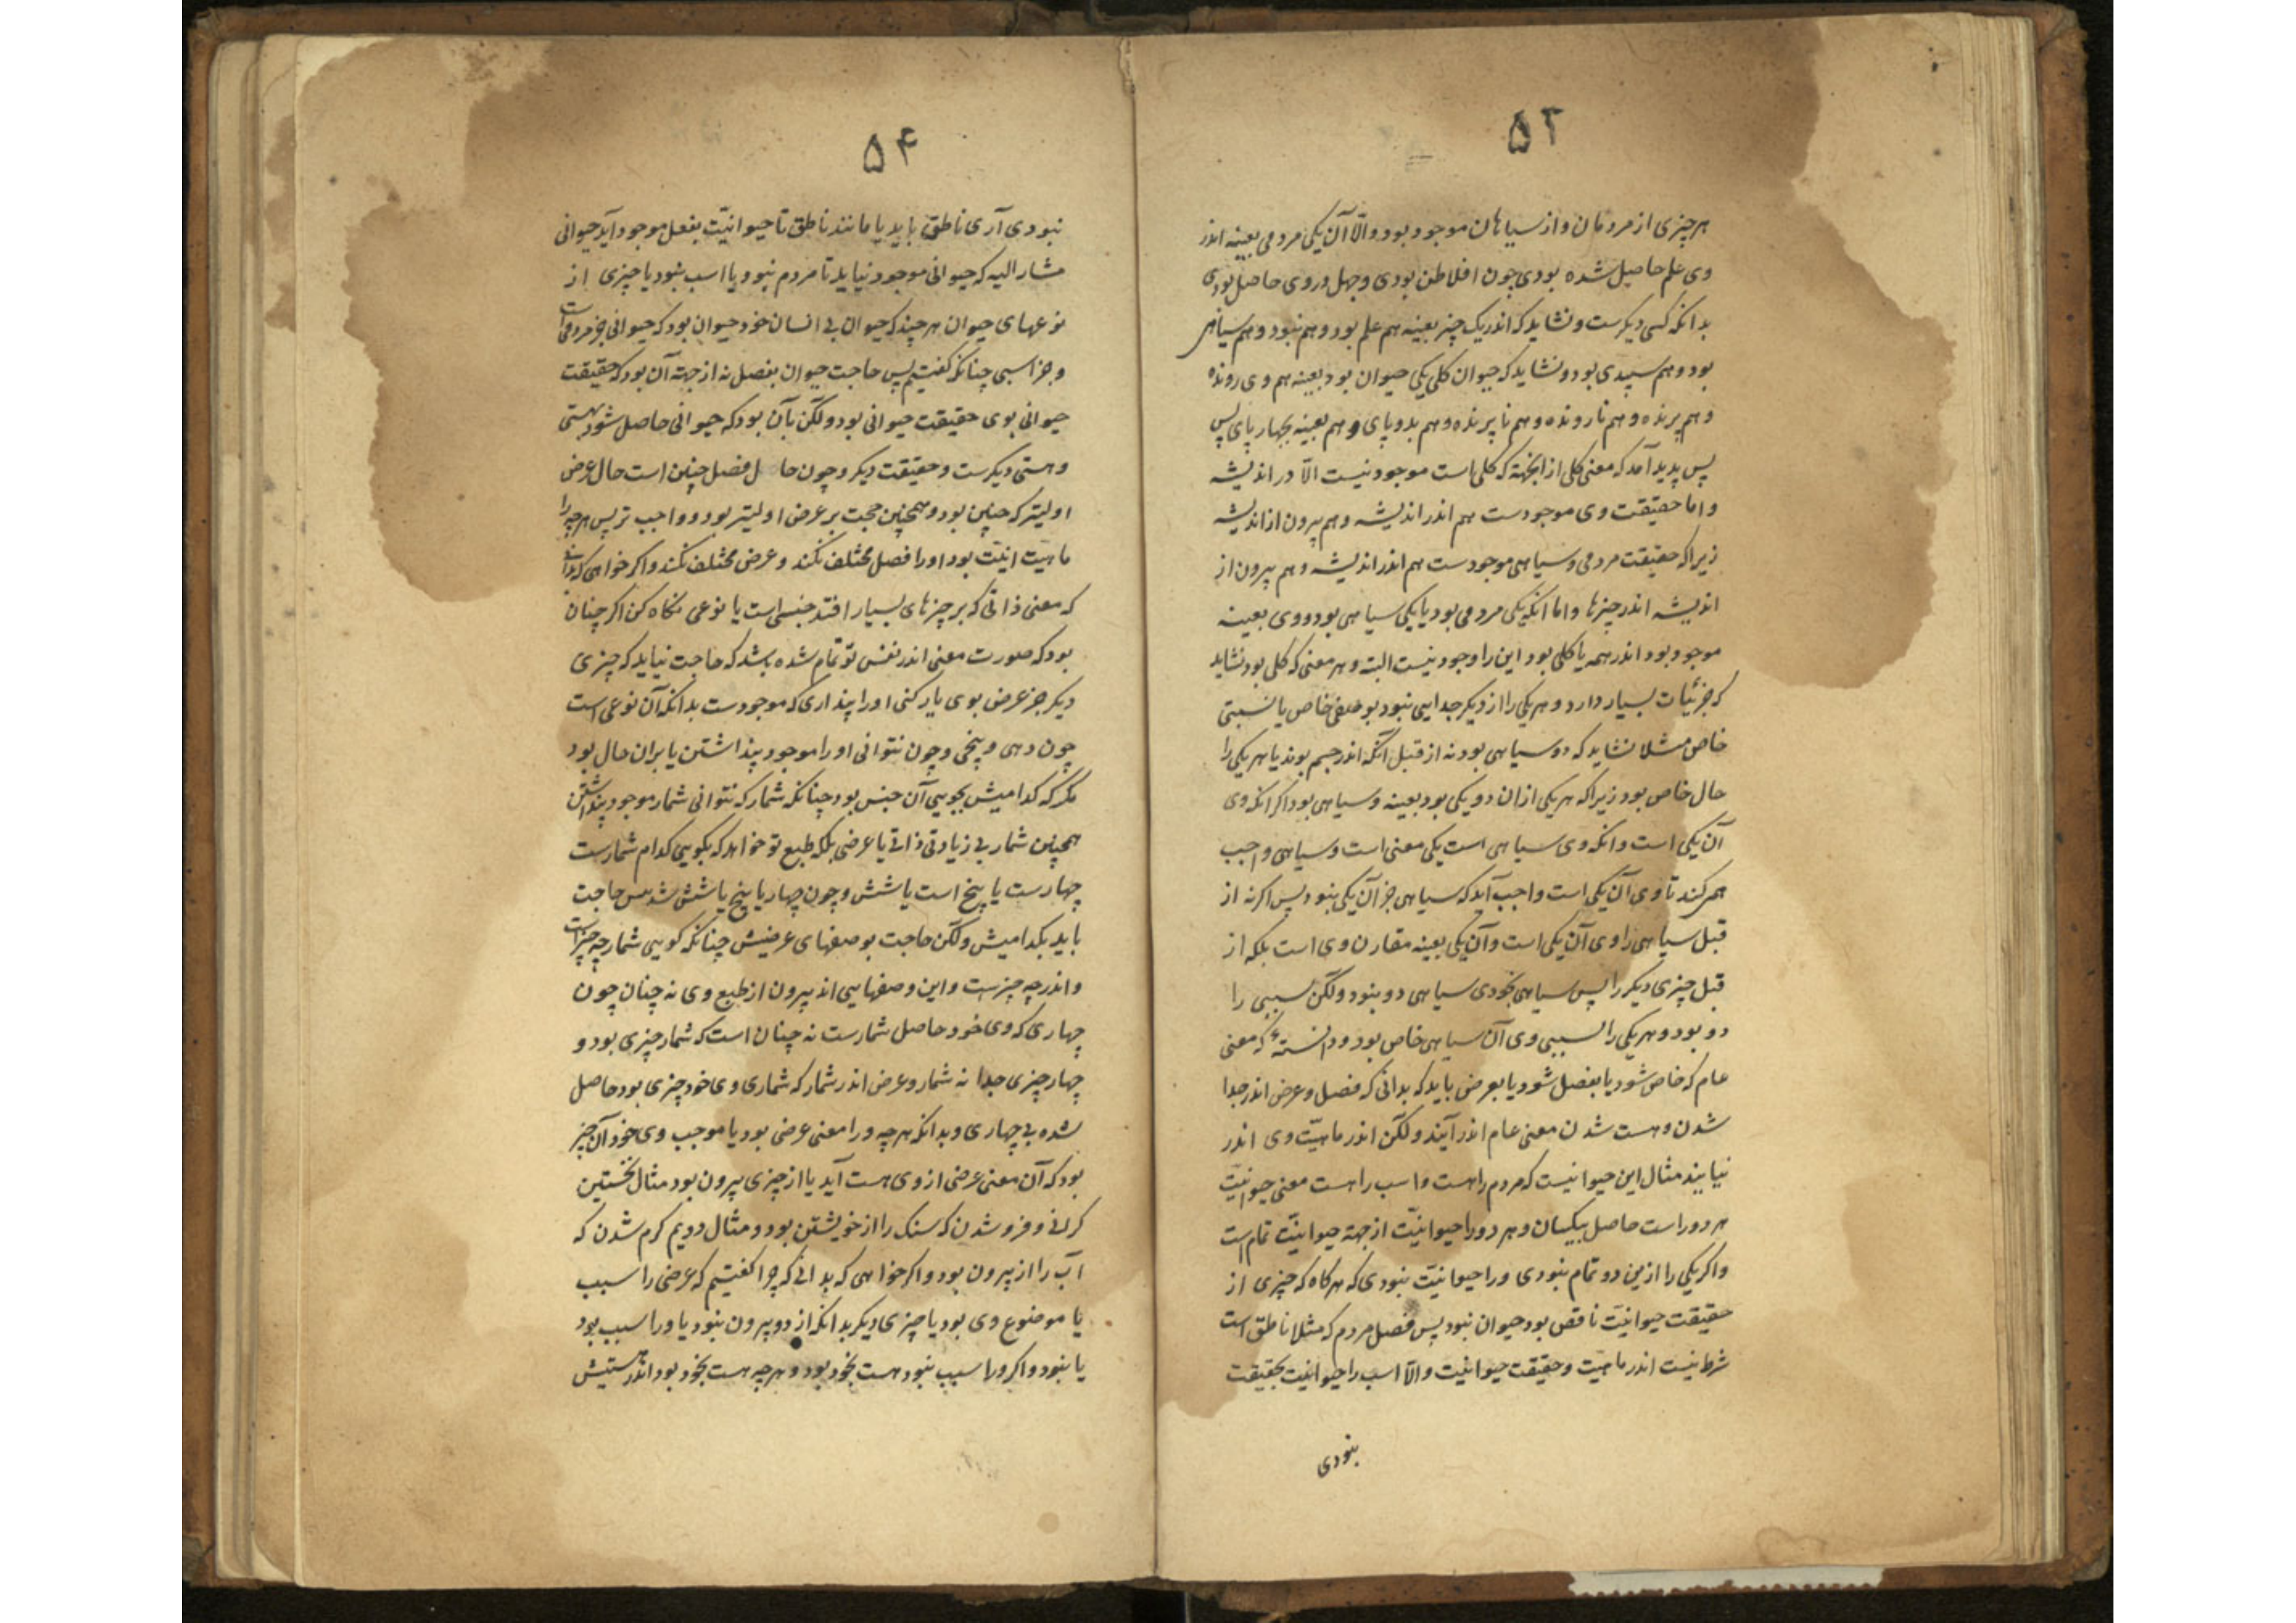 ۵۳
هر چیزی از مردمان و از سیاهان موجود بود و الّا آن یکی مردمی بعینه اندر
وی علم حاصل شده بودی چون افلاطن بودی و جهل در وی حاصل بودی
بدانکه کسی دیگرست و نشاید که اندر یک چیز بعینه هم علم بود و هم نبود و هم سیاهی
بود و هم سپیدی بود و نشاید که حیوان کلی یکی حیوان بود بعینه هم وی رونده
و هم پرنده و هم نارونده و هم ناپرنده و هم بدو پای و هم بعینه بچهار پای پس
پس پدید آمد که معنی کلی از آنجهة که کلی است موجود نیست الّا در اندیشه
و اما حقیقت وی موجودست هم اندر اندیشه و هم بیرون از اندیشه
زیرا که حقیقت مردمی و سیاهی موجودست هم اندر اندیشه و هم بیرون از
اندیشه اندر چیزها و اما آنکه یکی مردمی بود یا یکی سیاهی بود و وی بعینه
موجود بود اندر همه یا کلی بود این را وجود نیست البته و هر معنی که کلی بود نشاید
که جزئیات بسیار دارد و هر یکی را از دیگر جدایی نبود بوصفی خاص یا نسبتی
خاص مثلا نشاید که دو سیاهی بود نه از قبل آنکه اندر جسم بوند یا هر یکی را
حال خاص بود زیرا که هر یکی از ان دو یکی بود بعینه و سیاهی بود اکر آنکه وی
آن یکی است و آنکه وی سیاهی است یکی معنی است و سیاهی واجب
همی کند تا وی آن یکی است واجب آید که سیاهی جز آن یکی نبود پس اکر نه از
قبل سیاهی را وی آن یکی است و آن یکی بعینه مقارن وی است بلکه از
قبل چیزی دیگر را پس سیاهی بخودی سیاهی دو نبود و لکن سببی را
دو بود و هر یکی را بسببی وی آن سیاهی خاص بود و دانسته که معنی
عام که خاص شود یا بفصل شود یا بعرض باید که بدانی که فصل و عرض اندر جدا
شدن و هست شدن معنی عام اندر آیند و لکن اندر ماهیّت وی اندر
نیایند مثال این حیوانیست که مردم را هست و اسب را هست معنی حیوانیّت
هر دو راست حاصل بیکسان و هر دو را حیوانیّت از جهة حیوانیّت تمام است
و اکر یکی را ازین دو تمام نبودی ورا حیوانیّت نبودی که هر کاه که چیزی از
حقیقت حیوانیّت ناقص بود حیوان نبود پس فصل مردم که مثلا ناطق است
شرط نیست اندر ماهیّت و حقیقت حیوانیّت و الّا اسب را حیوانیّت بحقیقت
نبودی
۵۴
نبودی آری ناطق باید یا مانند ناطق تا حیوانیّت بفعل موجود آید حیوانی
مشار الیه که حیوانی موجود نیاید تا مردم نبود یا اسب نبود یا چیزی از
نوعهای حیوان هر چند که حیوان بی انسان خود حیوان بود که حیوانی جز مردمی است
و جز اسبی چنانکه کفتیم پس حاجت حیوان بفصل نه از جهة آن بود که حقیقت
حیوانی بوی حقیقت حیوانی بود و لکن بآن بود که حیوانی حاصل شود بهستی
و هستی دیگرست و حقیقت دیگر و چون حال فصل چنین است حال عرض
اولیتر که چنین بود و همچنین حجت بر عرض اولیتر بود و واجب تر پس هر چه را
ماهیّت انیّت بود او را فصل مختلف نکند و عرض مختلف نکند و اکر خواهی که بدانی
که معنی ذاتی که بر چیزهای بسیار افتد جنس است یا نوعی نکاه کن اکر چنان
بود که صورت معنی اندر نفس تو تمام شده باشد که حاجت نیاید که چیزی
دیگر جز عرض بوی یار کنی او را پنداری که موجودست بدانکه آن نوعی است
چون دهی و پنجی و چون نتوانی او را موجود پنداشتن یا بران حال بود
مکر که کدامیش بجویی آن جنس بود چنانکه شمار که نتوانی شمار موجود پنداشتن
همچنین شمار بی زیادتی ذاتی یا عرضی بلکه طبع تو خواهد که بکویی کدام شمارست
چهارست یا پنج است یا شش و چون چهار یا پنج یا شش شد پس حاجت
باید بکدامیش و لکن حاجت بوصفهای عرضیش چنانکه کویی شمار چه چیز است
و اندر چه چیزست و این وصفهایی اند بیرون از طبع وی نه چنان چون
چهاری که وی خود حاصل شمارست نه چنان است که شمار چیزی بود و
چهار چیزی جدا نه شمار و عرض اندر شمار که شماری وی خود چیزی بود حاصل
شده بی چهاری و بدانکه هر چه ورا معنی عرضی بود یا موجب وی خود آن چیز
بود که آن معنی عرضی از وی هست آید یا از چیزی بیرون بود مثال نخستین
کرانی و فرو شدن که سنک را از خویشتن بود و مثال دویم کرم شدن که
آب را از بیرون بود و اکر خواهی که بدانی که چرا کفتیم که عرضی را سبب
یا موضوع وی بود یا چیزی دیگر بدانکه از دو بیرون نبود یا ورا سبب بود
یا نبود و اکر ورا سبب نبود هست بخود بود و هر چه هست بخود بود اندر هستیش